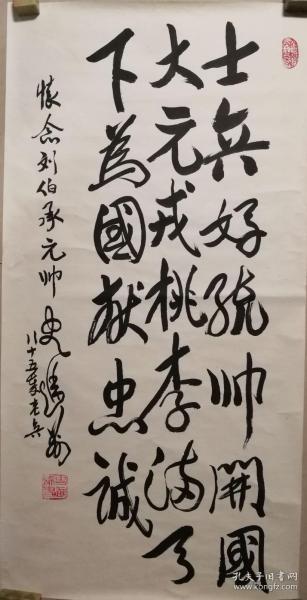 士兵好统帅開國
大元戎桃李满天
下為國献忠誠
懷念刘伯承元帅 史進前
八十五岁老兵
孔夫子旧书网
www.kongfz.com